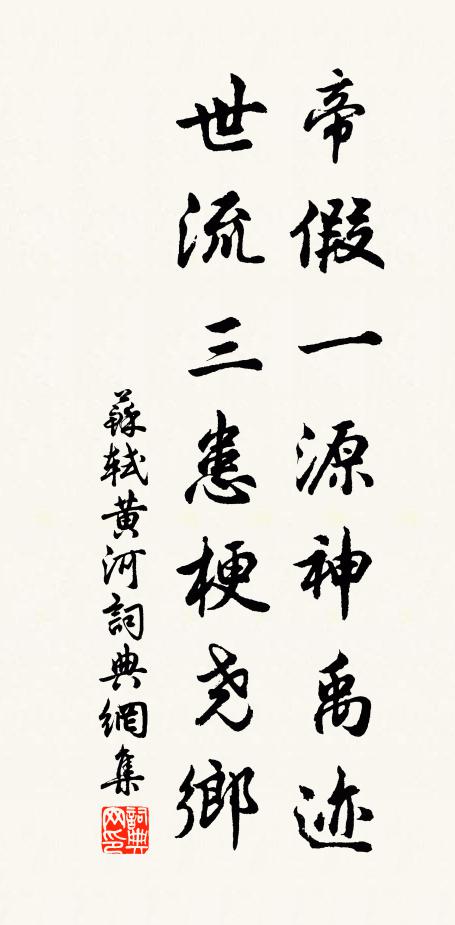 帝假一源神禹迹
世流三患梗尧鄉
蘇軾黄河詞典網集
詞典网印